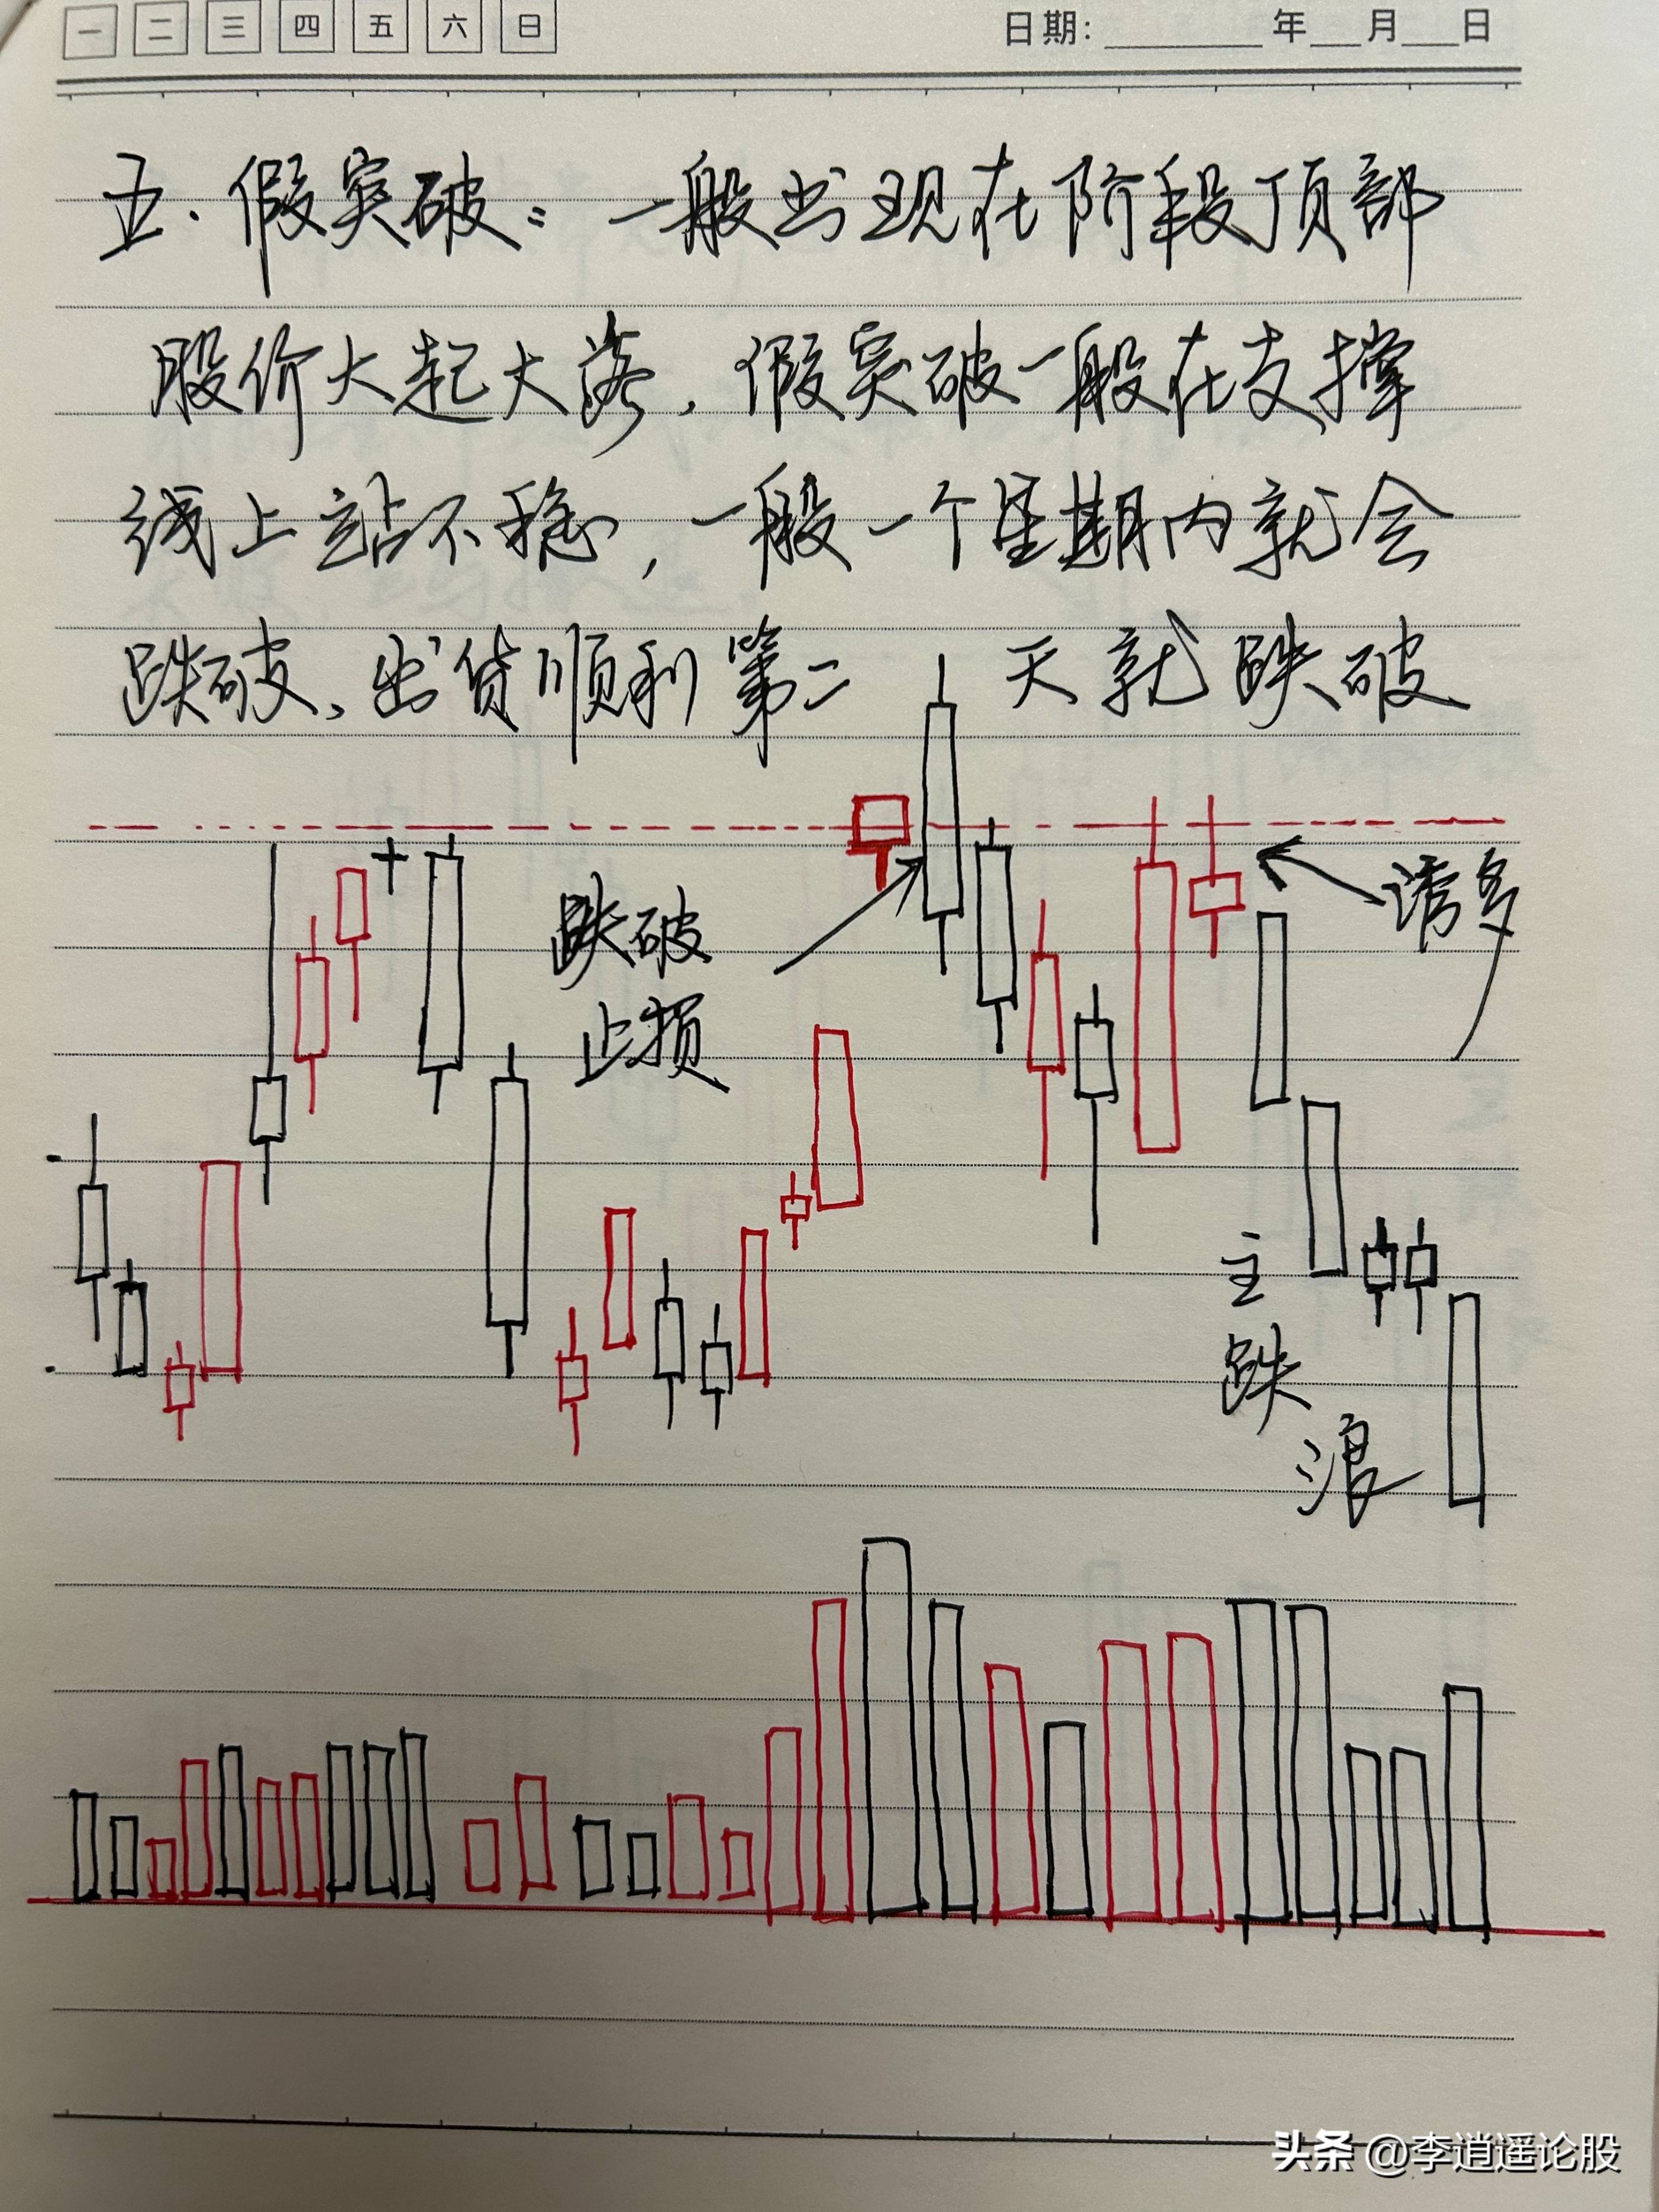 一 二 三 四 五 六 日 日期: 年 月 日
五.假突破:一般出现在阶段顶部
股价大起大落,假突破一般在支撑
线上站不稳,一般一个星期内就会
跌破、出货顺利第二天就跌破
跌破
止损
诱多
主
跌
浪
头条 @李逍遥论股